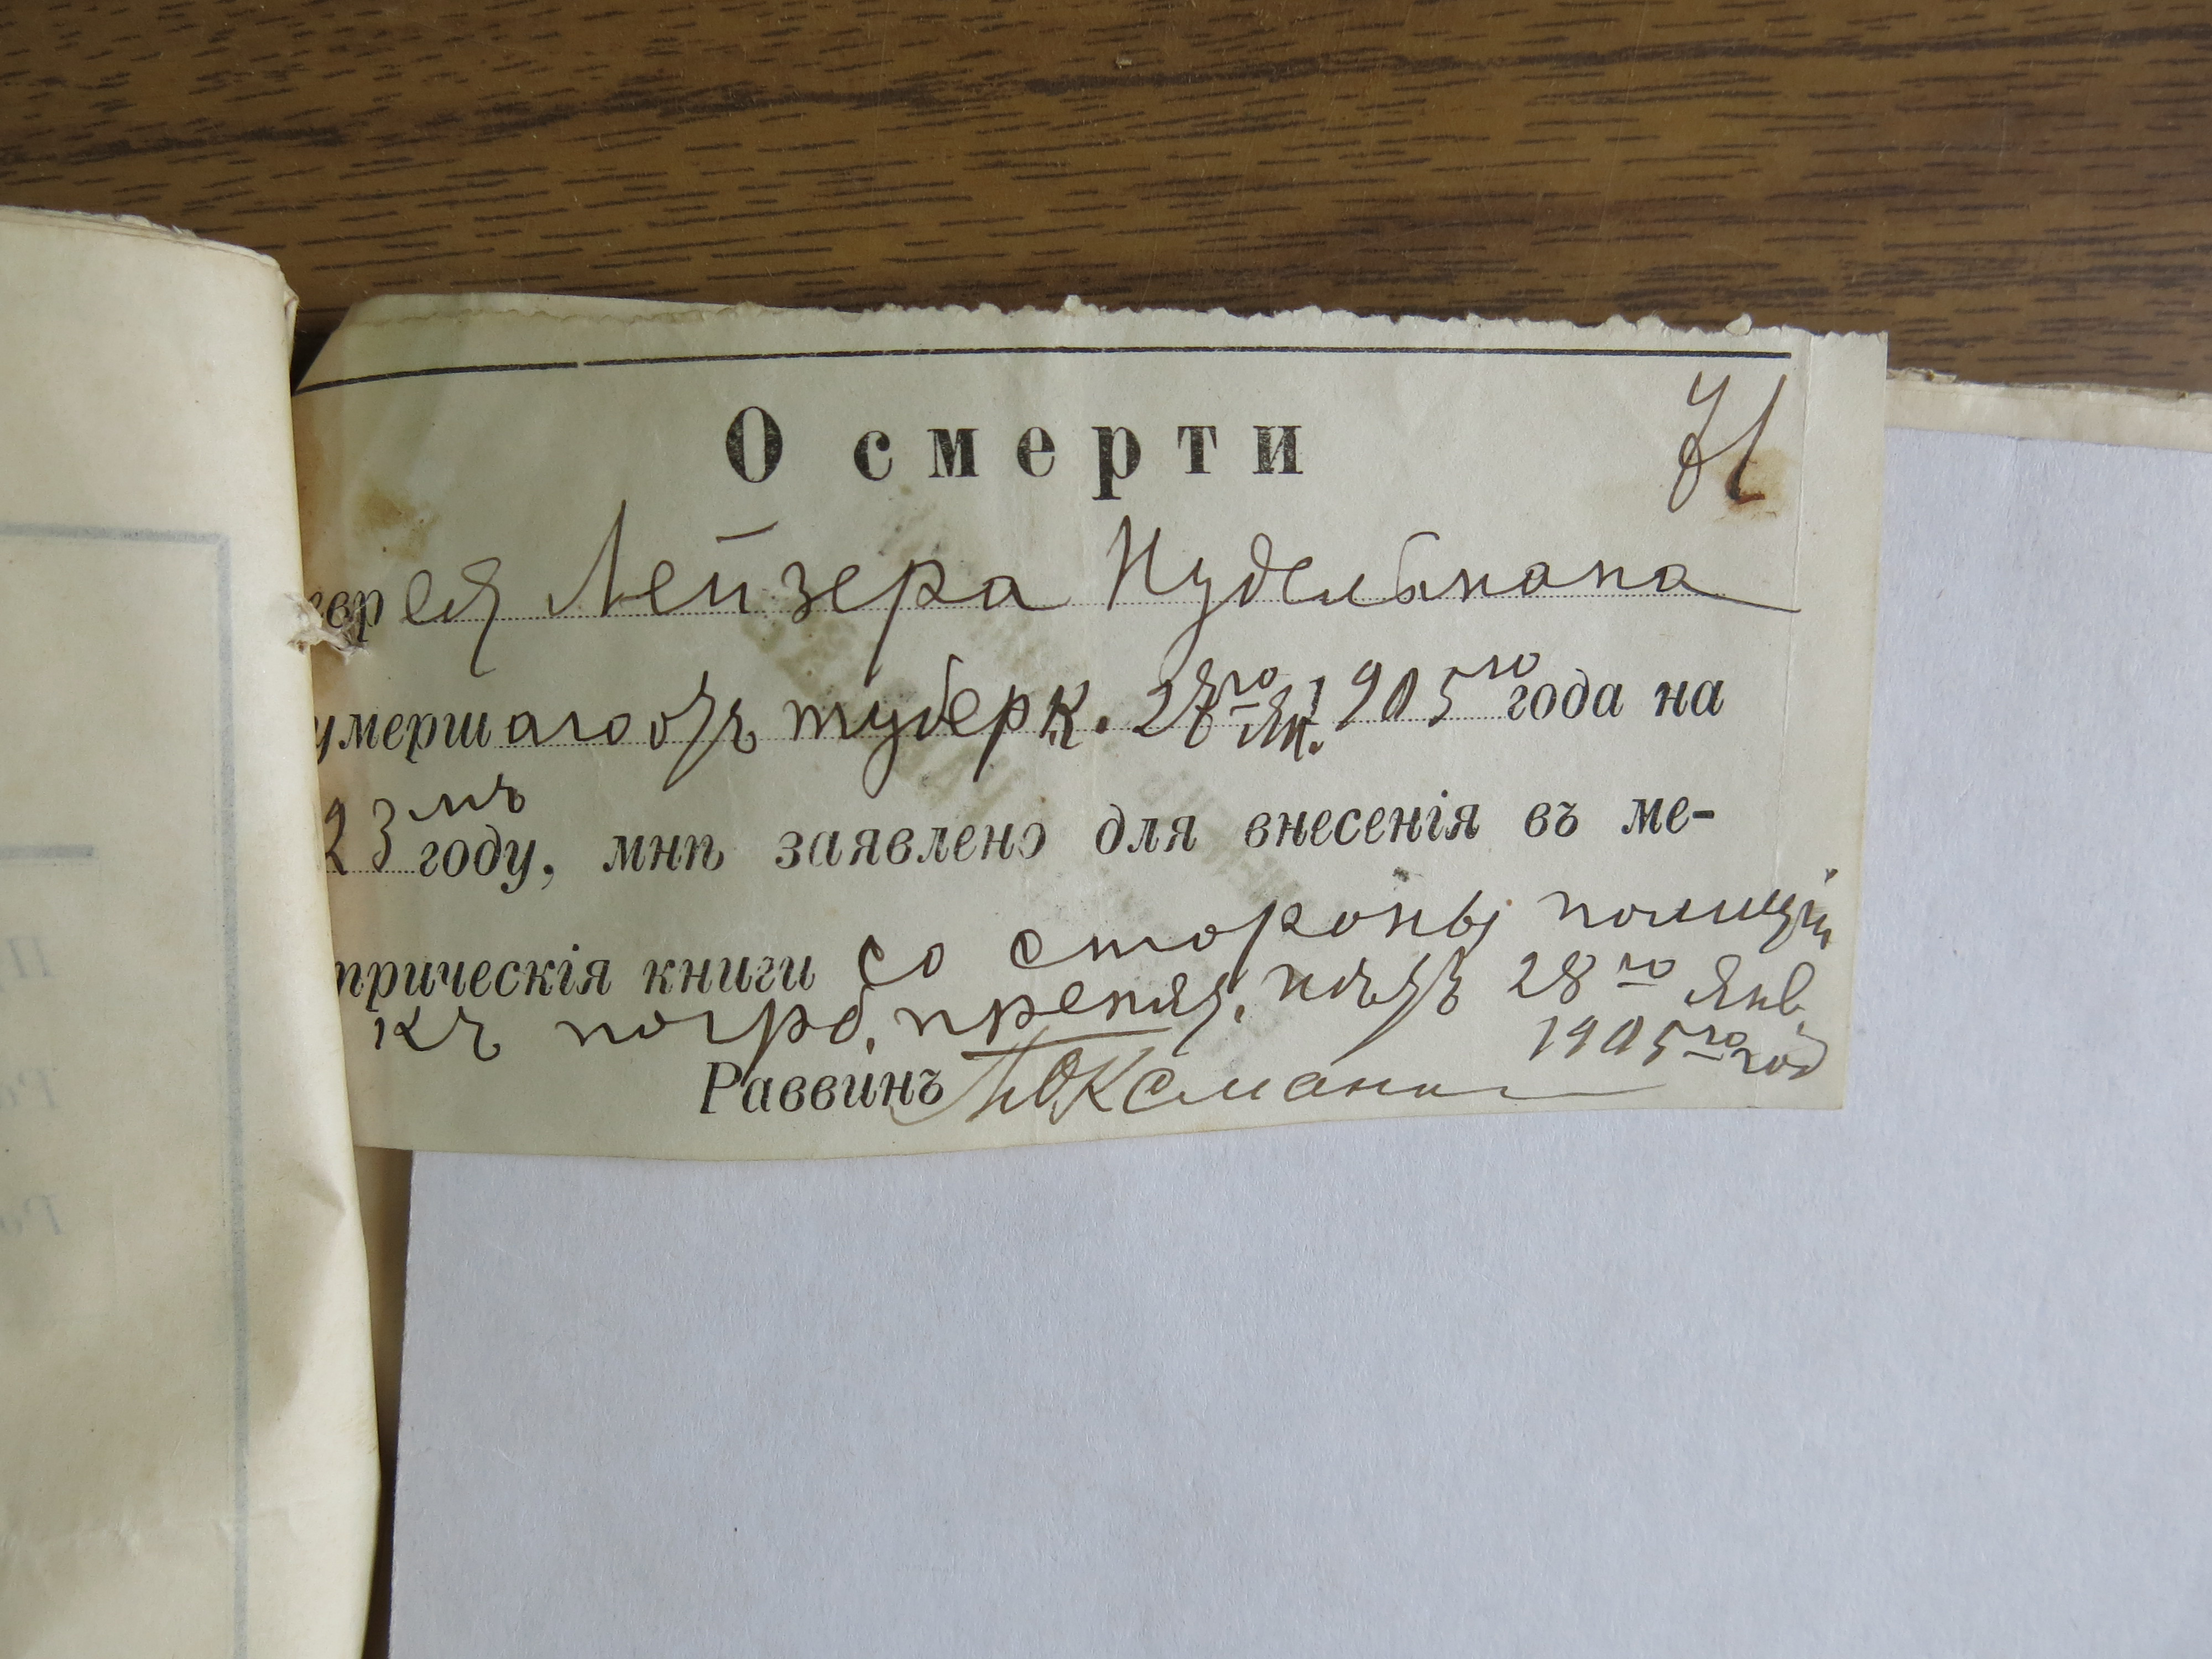 71
О смерти
еврея Лейзера Нудельмана
умершаго отъ туберк. 28го Ян. 1905го года на
23мъ году, мнѣ заявлено для внесенія въ ме-
трическія книги со стороны полиціи
къ погрб. препят. нѣтъ 28го Янв.
1905го год
Раввинъ